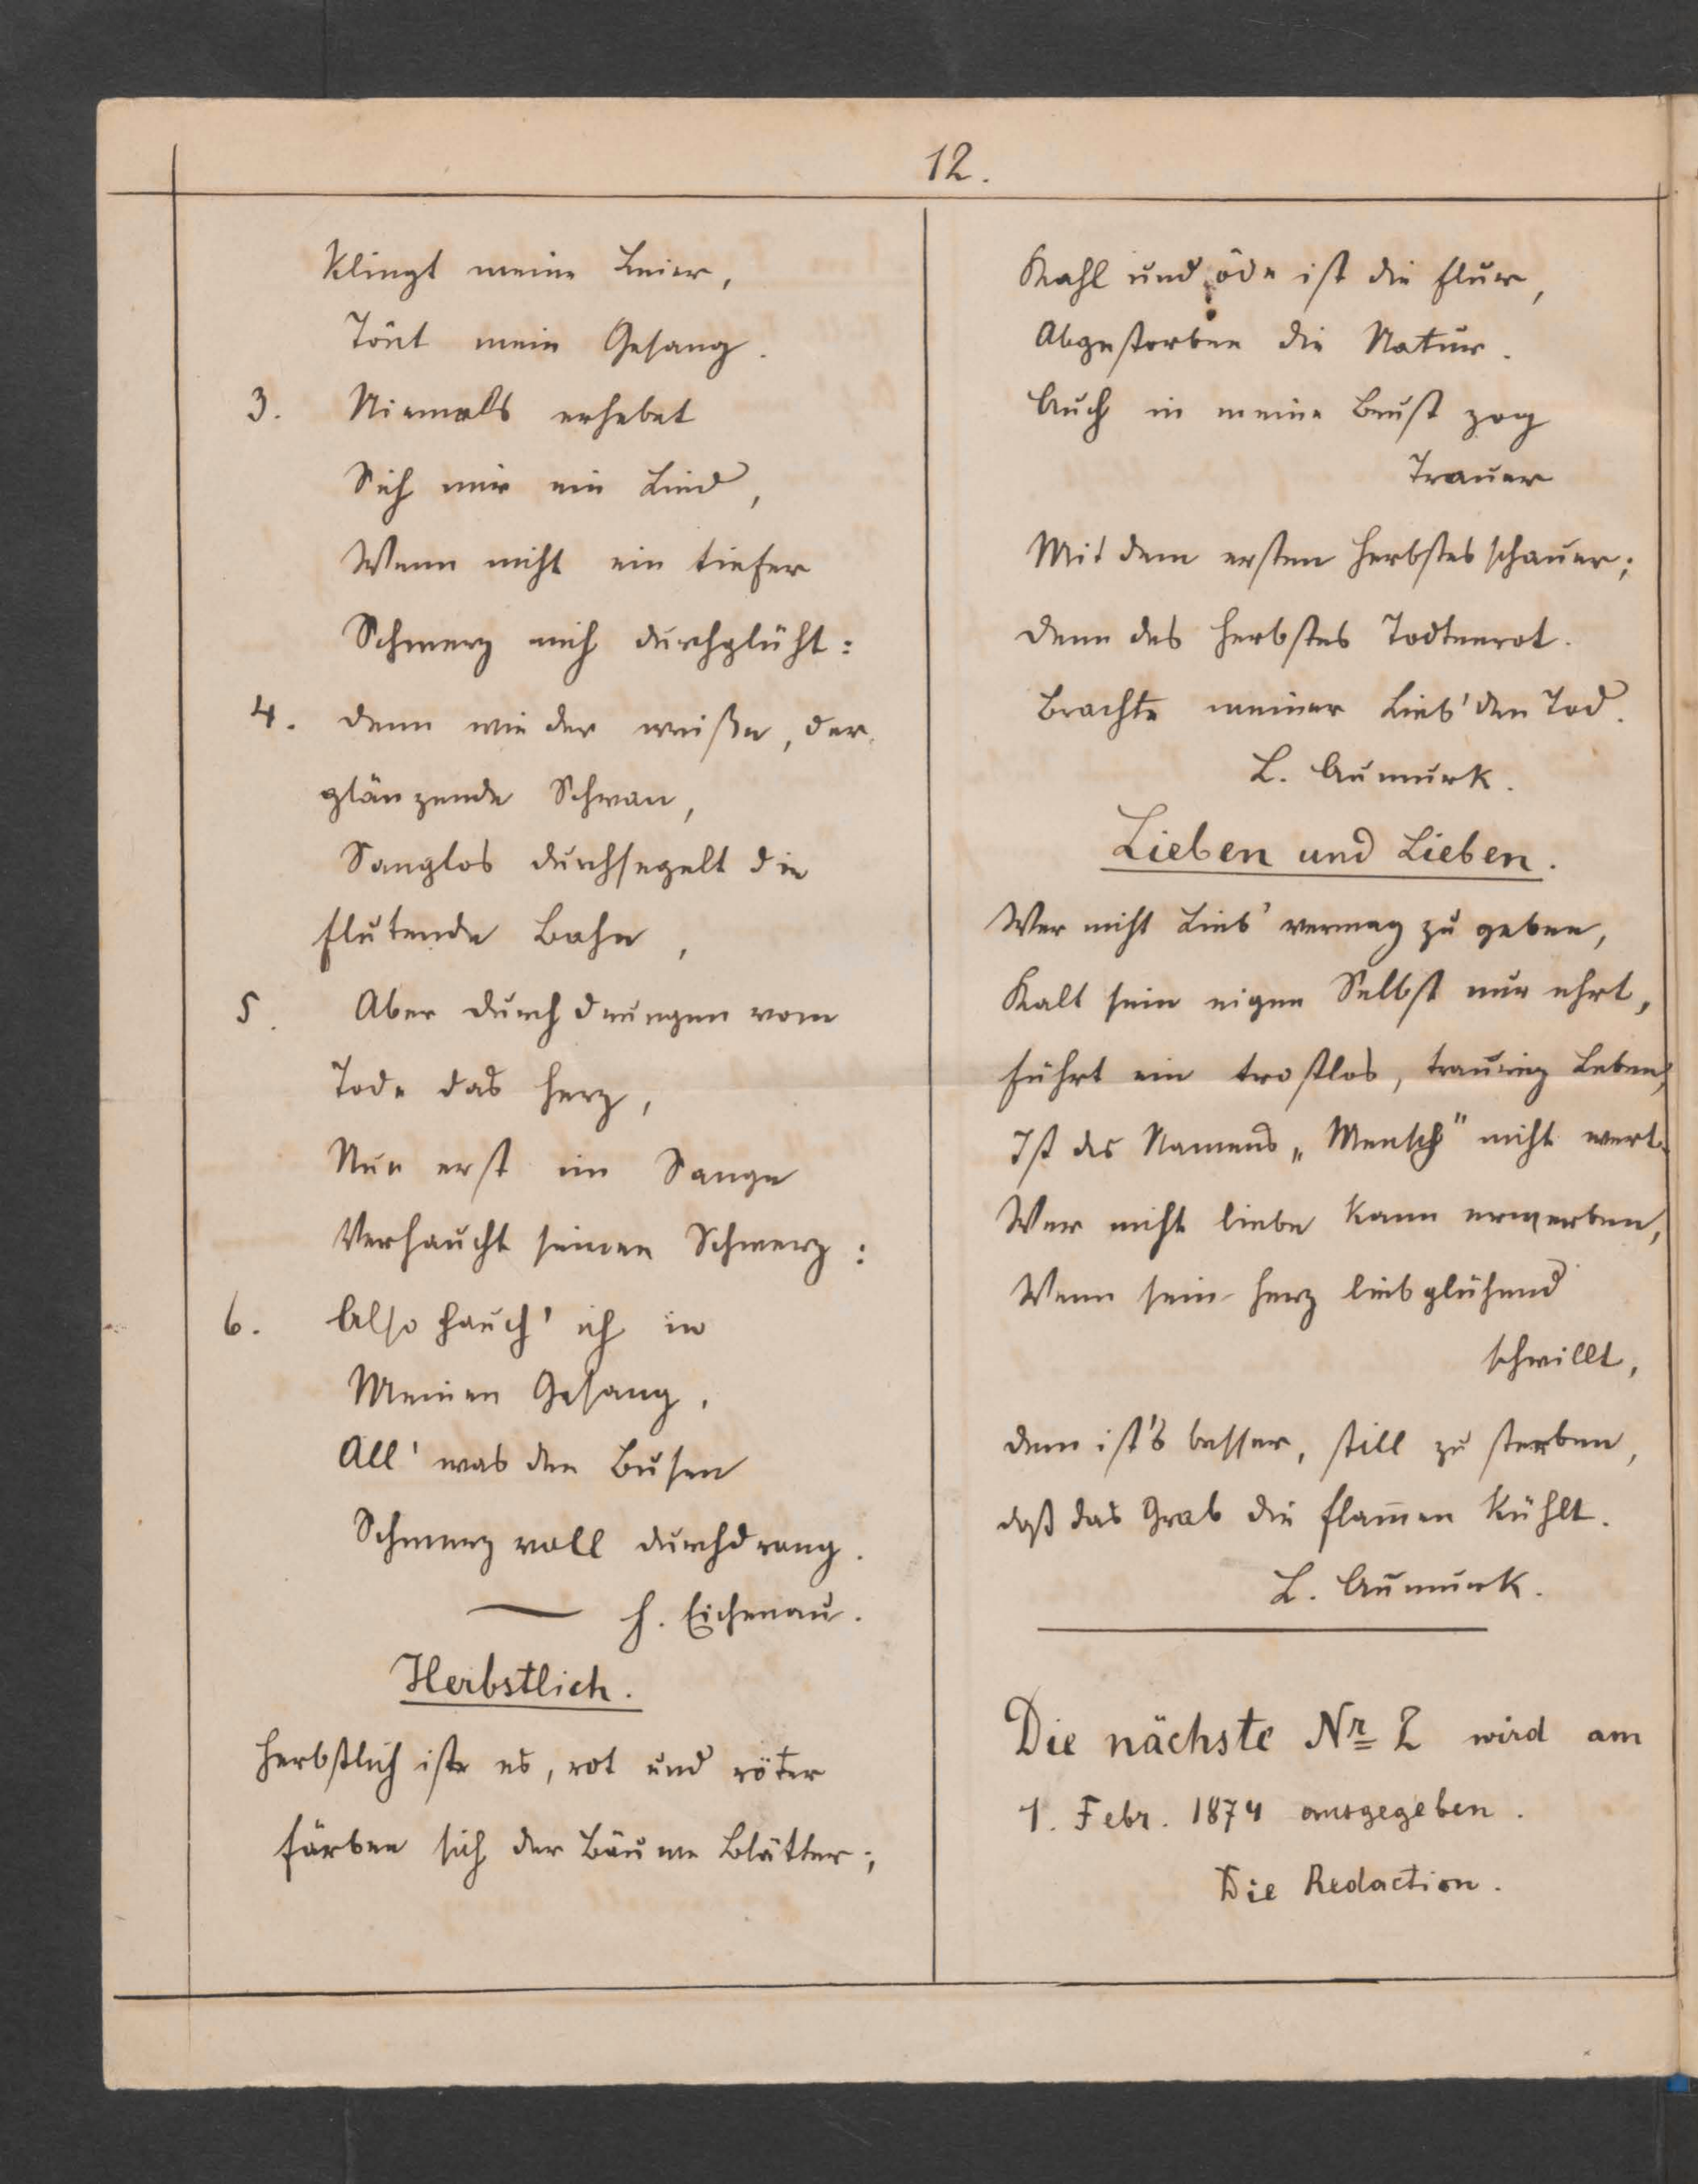 12.
Klingt meine Leier,
Tönt mein Gesang.
3. Niemals erhebet
Sich mir ein Lied,
Wenn nicht ein tiefer
Schmerz mich durchglüht:
4. Denn wie der weiße, der
glänzende Schwan,
Sanglos durchsegelt die
flutende Bahn,
5. Aber durchdrungen vom
Tode das Herz,
Nun erst im Sange
Verhaucht seinen Schmerz:
6. Also hauch' ich in
Meinen Gesang,
All' was den Busen
Schmerzvoll durchdrang.
H. Eichenau.
Herbstlich.
Herbstlich ist es, rot und röter
färben sich der Bäume Blätter;
Kahl und öde ist die Flur,
Abgestorben die Natur.
Auch in meine Brust zog
Trauer
Mit dem ersten Herbstesschauer;
Denn des Herbstes Todtenrot.
Brachte meiner Lieb' den Tod.
L. Aumurk.
Lieben und Lieben.
Wer nicht Lieb' vermag zu geben,
Kalt sein eigen Selbst nur ehrt,
führt ein trostlos, traurig Leben,
Ist des Namens „Mensch" nicht wert.
Wer nicht Liebe kann erwerben,
Wenn sein Herz liebglühend
schwillt,
Dem ist's besser, still zu sterben,
Daß das Grab die Flam̅en kühlt.
L. Aumurk.
Die nächste Nr 2 wird am
1. Febr. 1874 ausgegeben.
Die Redaction.